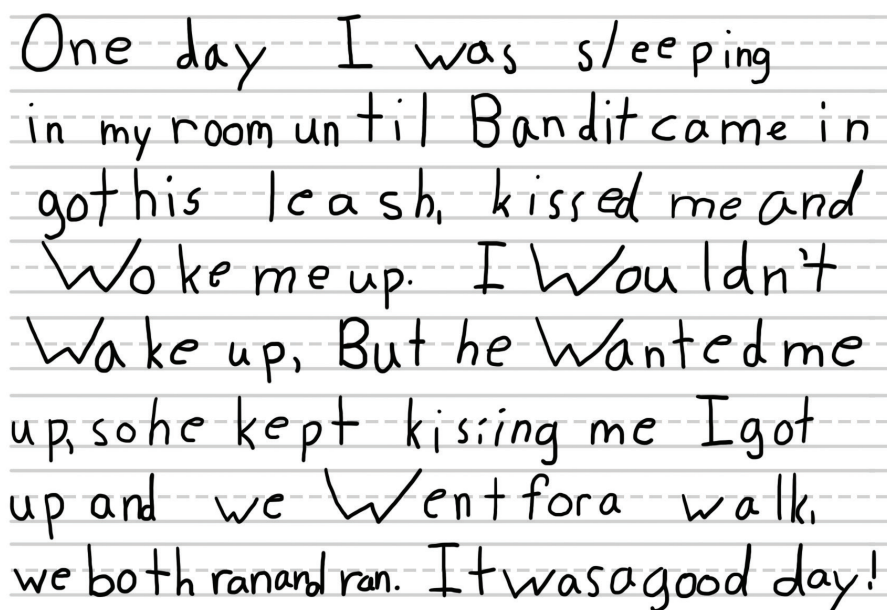 One day I was sleeping
in my room until Bandit came in
got his leash, kissed me and
Woke me up. I Wouldn't
Wake up, But he Wanted me
up, so he kept kisiing me I got
up and we Went for a walk,
we both ran and ran. It was a good day!